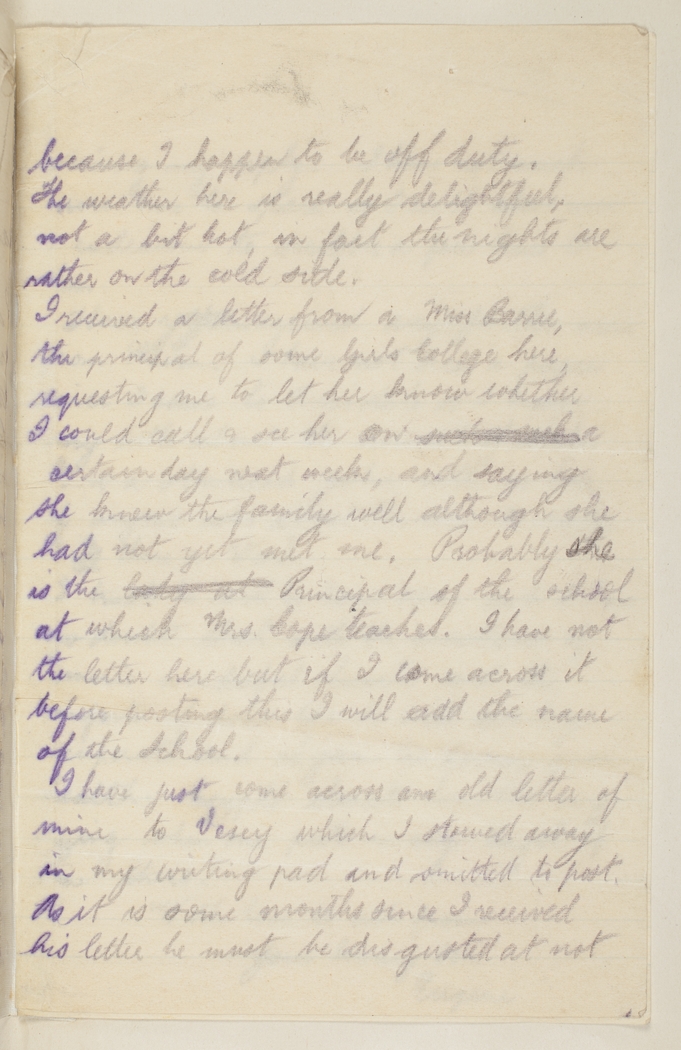 because I happen to be off duty.
The weather here is really delightful,
not a bit hot, in fact the nights are
rather on the cold side.
I received a letter from a Miss Barrie,
the principal of some Girls College here,
requesting me to let her know whether
I could call & see her on such such a
certain day next week, and saying
she knew the family well although she
had not yet met me. Probably she
is the lady at Principal of the school
at which Mrs. Cope teaches. I have not
the letter here but if I come across it
before posting this I will add the name
of the School.
I have just come across an old letter of
mine to Vesey which I stowed away
in my writing pad and omitted to post.
As it is some months since I received
his letter he must be disgusted at not